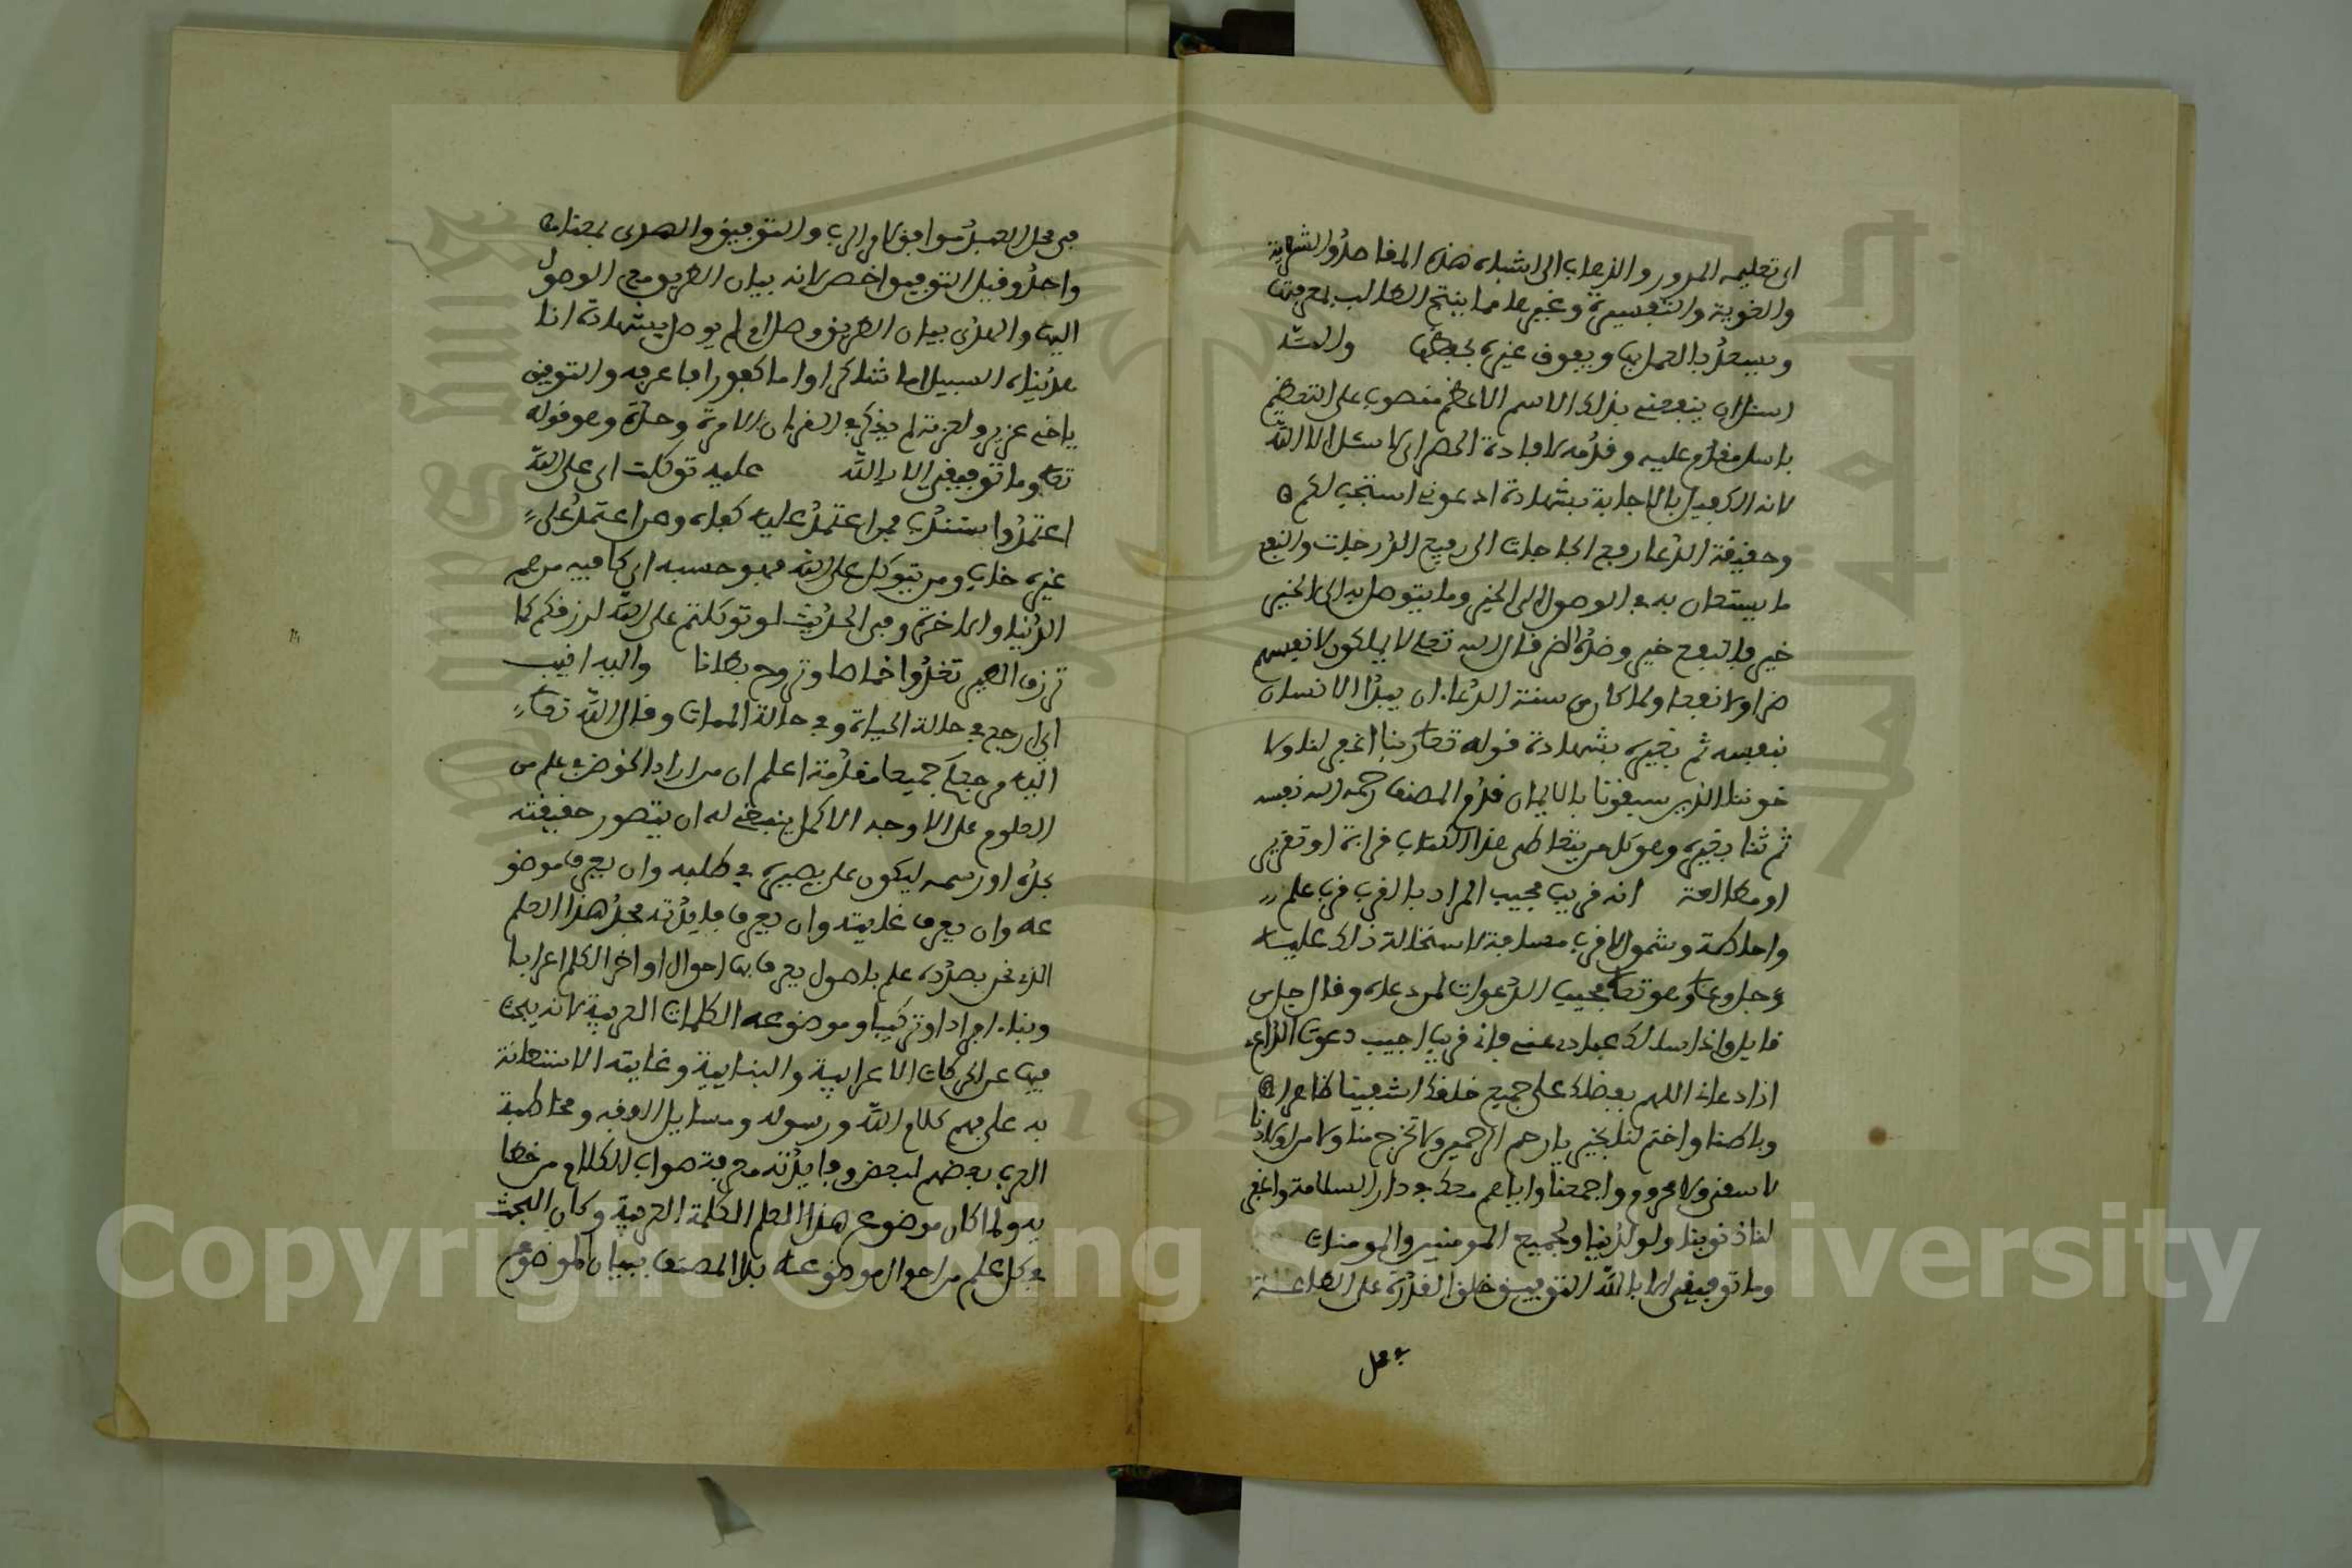 الى تعليمه المرور والذهاب الى اشباه هذه المقاصد والشرعية
واللغوية والتفسيرية وغيرها مما ينتج الطالب بمعرفتها
ويسعد بالعمل بها ويفوق غيره بحفظها والله
اسئل ان ينفعني بذلك الاسم الاعظم منصوب على التعظيم
باسئل مقدم عليه وقدمه لافادة الحصر اي لا اسئل الا الله
لانه الكفيل بالاجابة بشهادة ادعوني استجب لكم
وحقيقة الدعا رفع الحاجات الى رفيع الدرجات والنفع
ما يستعان به في الوصول الى الخير وما يتوصل به الى الخير
خير فالنفع خير وضده الضر قال الله تعلى لا يملكون لانفسهم
ضرا ولا نفعا ولما كان من سنة الدعاء ان يبدا الانسان
بنفسه ثم بغيره بشهادة قوله تعلى ربنا اغفر لنا ولا
خوننا الذين سبقونا بالايمان قدم المصنف رحمه الله نفسه
ثم ثنا بغيره وهو كل من يتعاطى هذا الكتاب قراءة او تقرير
او مطالعة انه قريب مجيب المراد بالقرب قرب علم
واحاطة وشمول لا قرب مسافة لاستحالة ذلك عليه
عز وجل وعلى وهو تعلى مجيب الدعوات لمن دعاه وقال جل من
قايل واذا سالك عبادي عني فاني قريب اجيب دعوت الداع
اذا دعان اللهم بفضلك على جميع خلقك اشفينا ظاهرا
وباطنا واختم لنا بخير يا ارحم الراحمين ولا تخرج منا ولا من اولادنا
لا سقي ولا محروم واجمعنا واياهم معك في دار السلامة واغفر
لنا ذنوبنا ولوالدينا ولجميع المومنين والمومنات
وما توفيقي الا بالله التوفيق خلق القدرة على الطاعة
في محل
في محل العبد موافق لامر الرب والتوفيق والهدى بمعنى
واحد وقيل التوفيق اخص لانه بيان الطريق مع الوصول
اليه والهدى بيان الطريق وصل ام لم يوصل بشهادة انا
هديناه السبيل اما شاكرا واما كفورا فاعرفه والتوفيق
يا اخي عزيز ولعزته لم يذكر في القرءان الا مرة وحدة وهو قوله
تعلى وما توفيقي الا بالله عليه توكلت اي على الله
اعتمد واستند فمن اعتمد عليه كفاه ومن اعتمد على
غيره خاب ومن يتوكل على الله فهو حسبه اي كافيه من هم
الدنيا والاخرة وفي الحديث لو توكلتم على الله لرزقكم كما
ترزق الطير تغدوا خماصا وتروح بطانا واليه انيب
اي ارجع في حالة الحياة وفي حالة الممات وقال الله تعلى
اليه مرجعكم جميعا مقدمة اعلم ان من اراد الخوض في علم من
العلوم على الاوجه الاكمل ينبغي له ان يتصور حقيقته
بحده او رسمه ليكون على بصيرة في طلبه وان يعرف موضو
عه وان يعرف غايته وان يعرف فايدته فحد هذا العلم
الذي نحن بصدده علم باصول يعرف بها احوال اواخر الكلم اعرابا
وبناء افرادا وتركيبا وموضوعه الكلمات العربية لانه يبحث
فيها عن الحركات الاعرابية والبنايية وغايته الاستعانة
به على فهم كلام الله ورسوله ومسايل الفقه ومخاطبة
العرب بعضهم لبعض وفايدته معرفة صواب الكلام من خطا
يه ولما كان موضوع هذا العلم الكلمة العربية وكان البحث
في كل علم من احوال موضوعه بدا المصنف ببيان الموضوع
Copyright © King Saud University
جامعة الملك سعود
King Saud University
1957